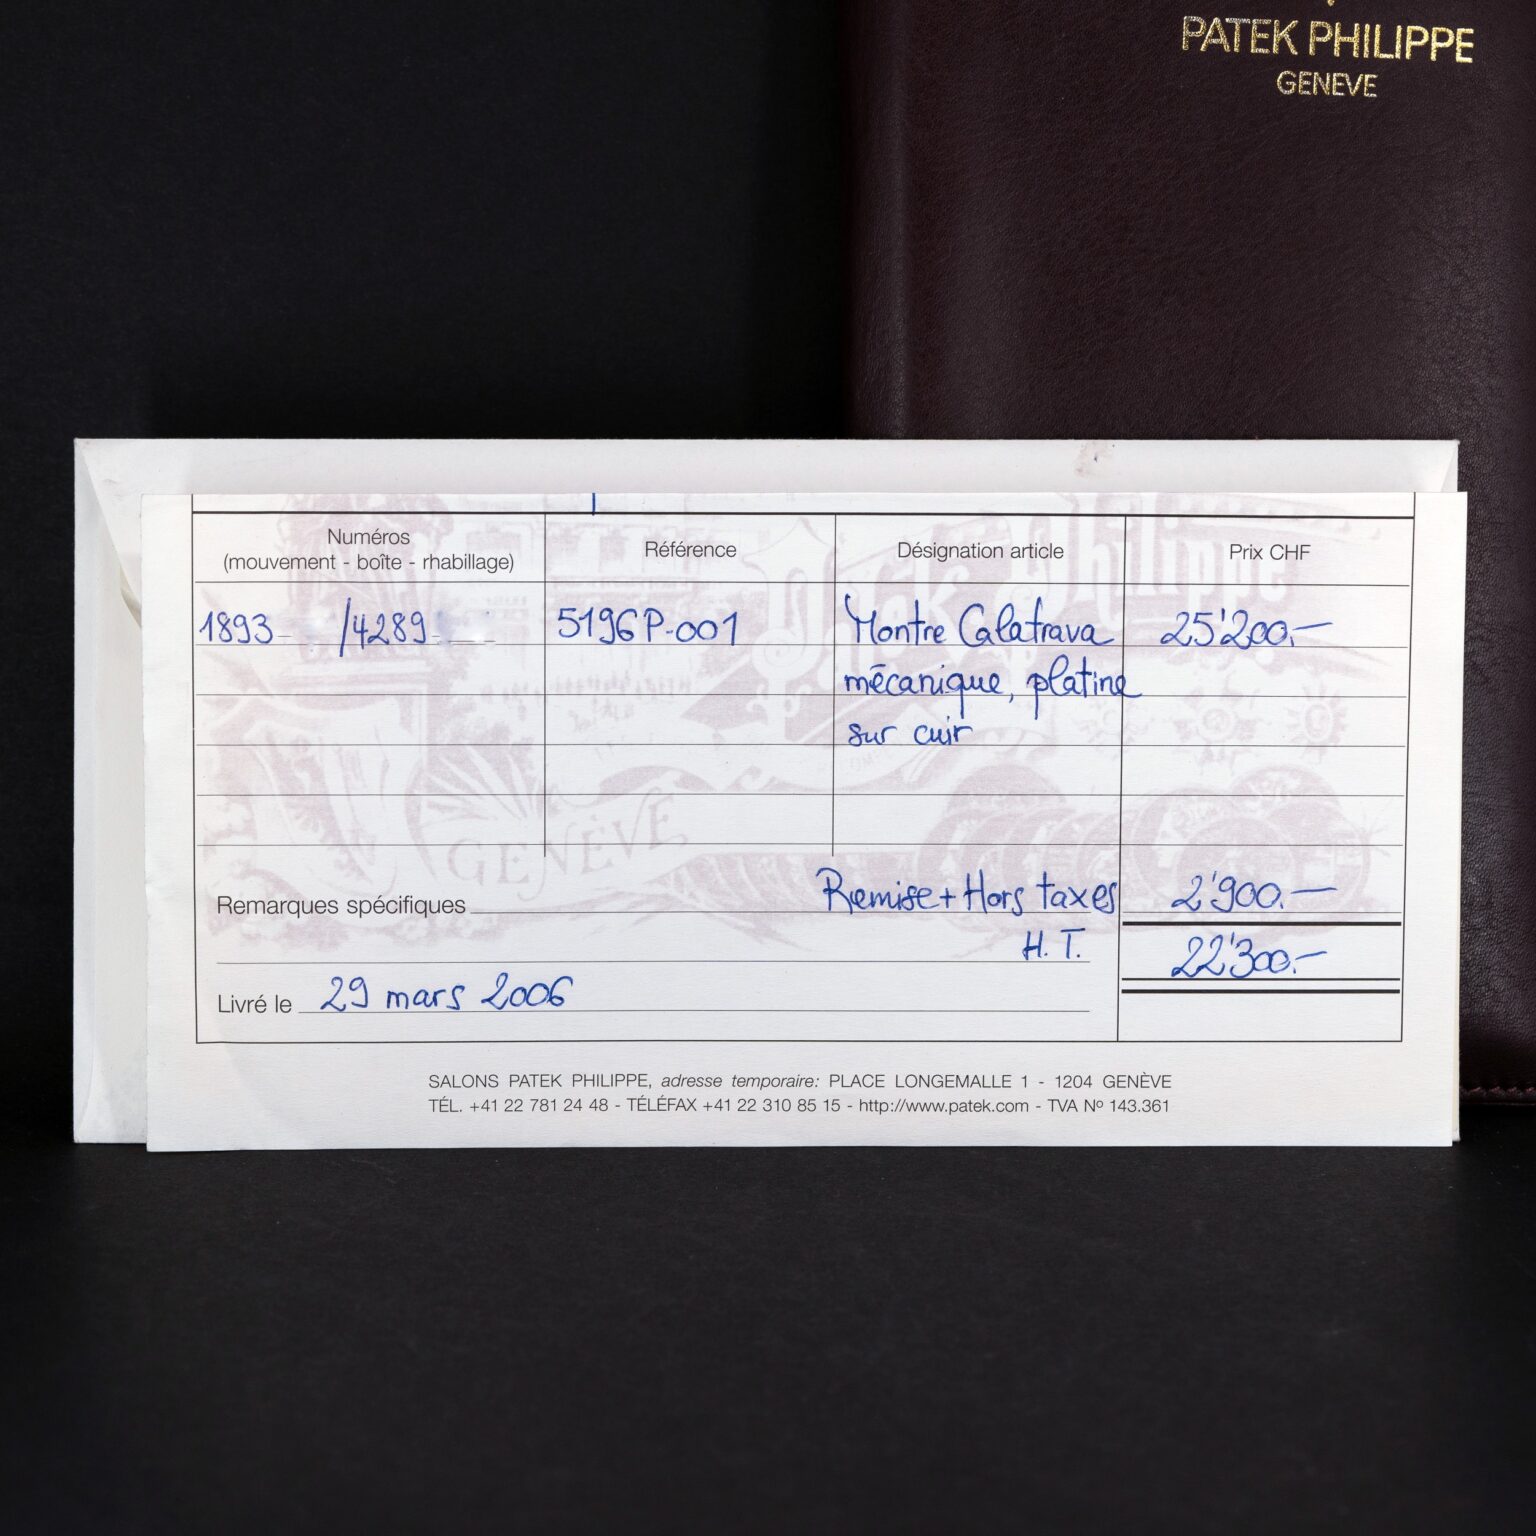 PATEK PHILIPPE
GENEVE
Numéros
(mouvement - boîte - rhabillage)
Référence
Désignation article
Prix CHF
1893 /4289
5196P-001
Montre Calatrava
25'200.-
mécanique, platine
sur cuir
GENÈVE
Remarques spécifiques
Remise + Hors taxes
2'900.-
H.T.
22'300.-
Livré le 29 mars 2006
SALONS PATEK PHILIPPE, adresse temporaire: PLACE LONGEMALLE 1 - 1204 GENÈVE
TÉL. +41 22 781 24 48 - TÉLÉFAX +41 22 310 85 15 - http://www.patek.com - TVA Nº 143.361